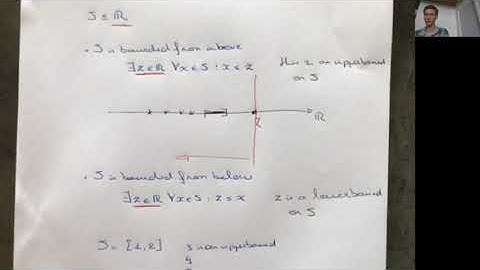 S ⊆ ℝ
• S is bounded from above
∃z∈ℝ ∀x∈S : x ≤ z
this z an upperbound
on S
z
ℝ
• S is bounded from below
∃z∈ℝ ∀x∈S : z ≤ x
z is a lowerbound
on S
S = [1,2]
3 is an upperbound
4